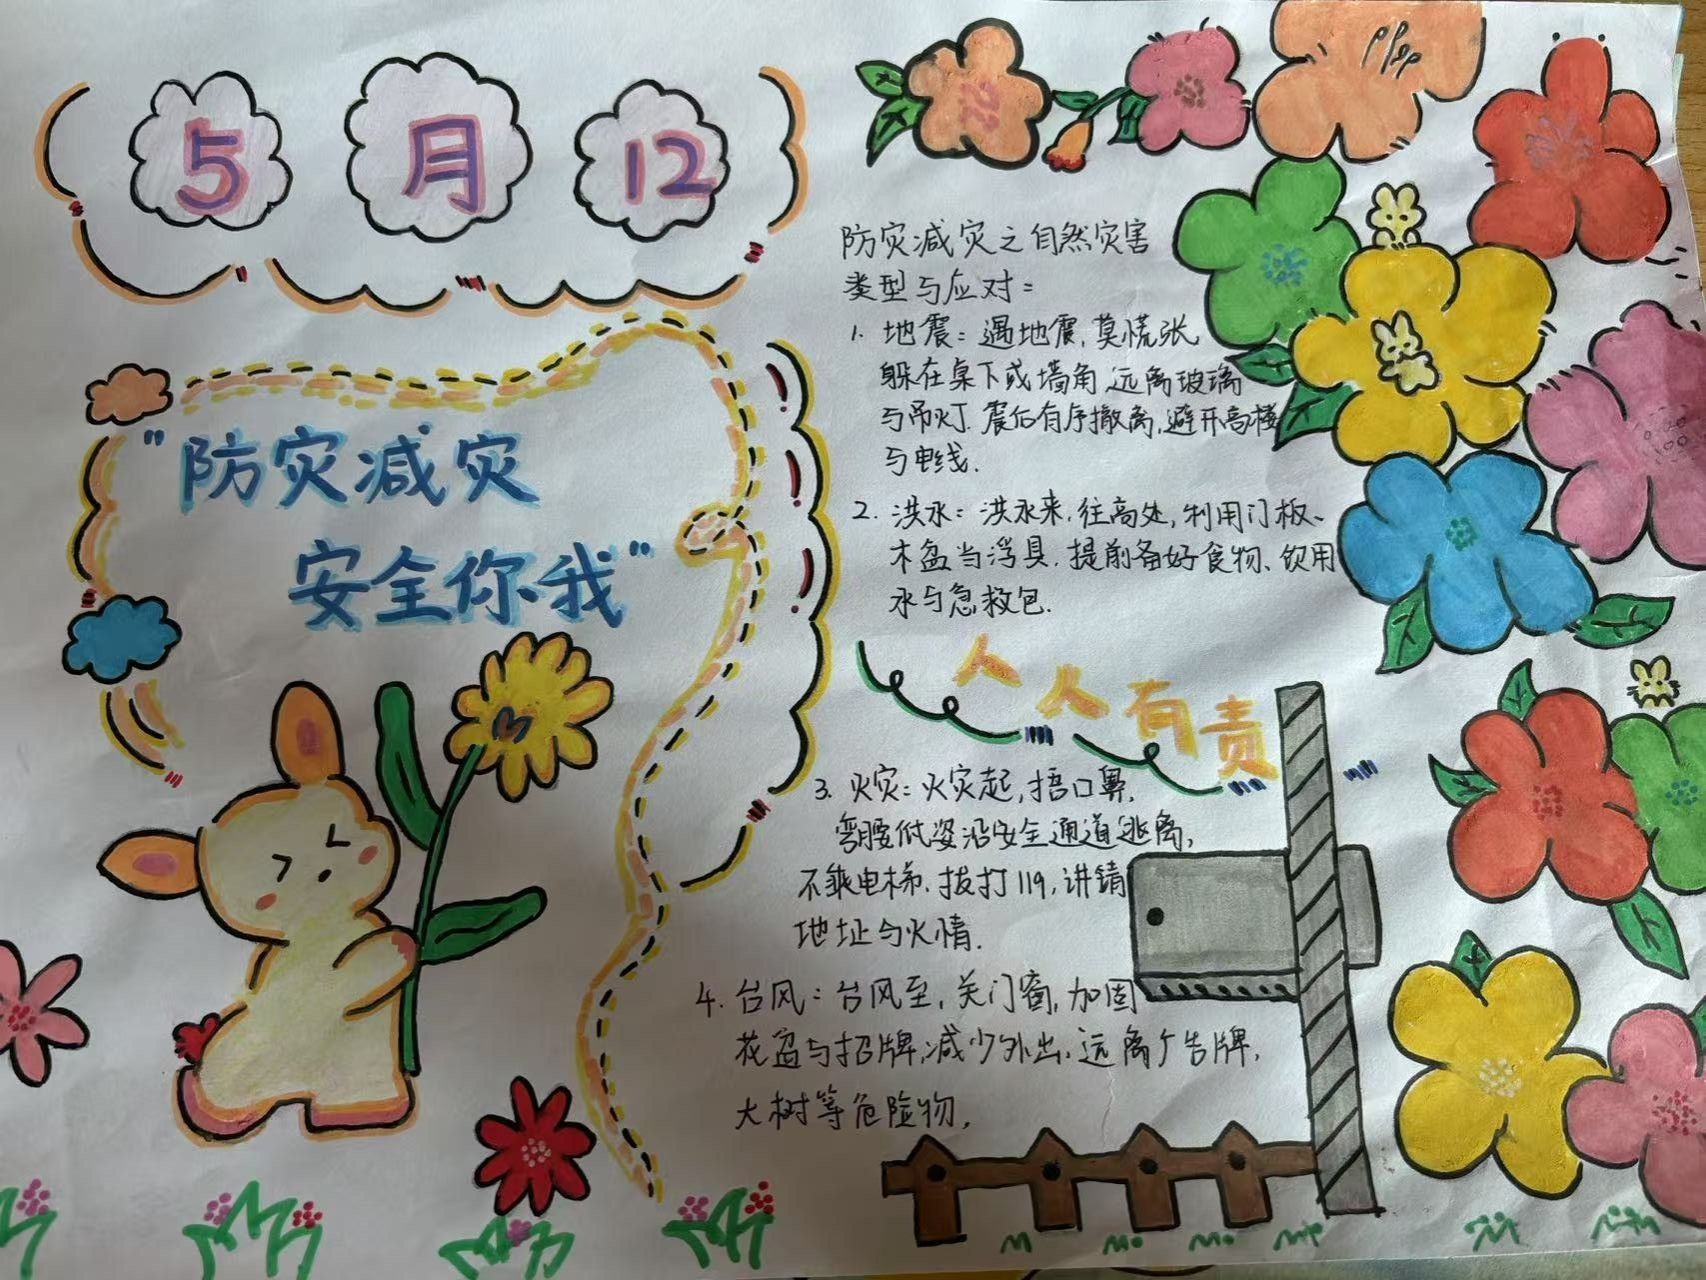 5月12
“防灾减灾
安全你我”
防灾减灾之自然灾害
类型与应对:
1. 地震: 遇地震,莫慌张,
躲在桌下或墙角,远离玻璃
与吊灯.震后有序撤离,避开高楼
与电线.
2. 洪水: 洪水来,往高处,利用门板、
木盆当浮具.提前备好食物、饮用
水与急救包.
人人有责
3. 火灾: 火灾起,捂口鼻,
弯腰低姿沿安全通道逃离,
不乘电梯.拔打119,讲错
地址与火情.
4. 台风: 台风至,关门窗,加固
花盆与招牌,减少外出,远离广告牌,
大树等危险物.